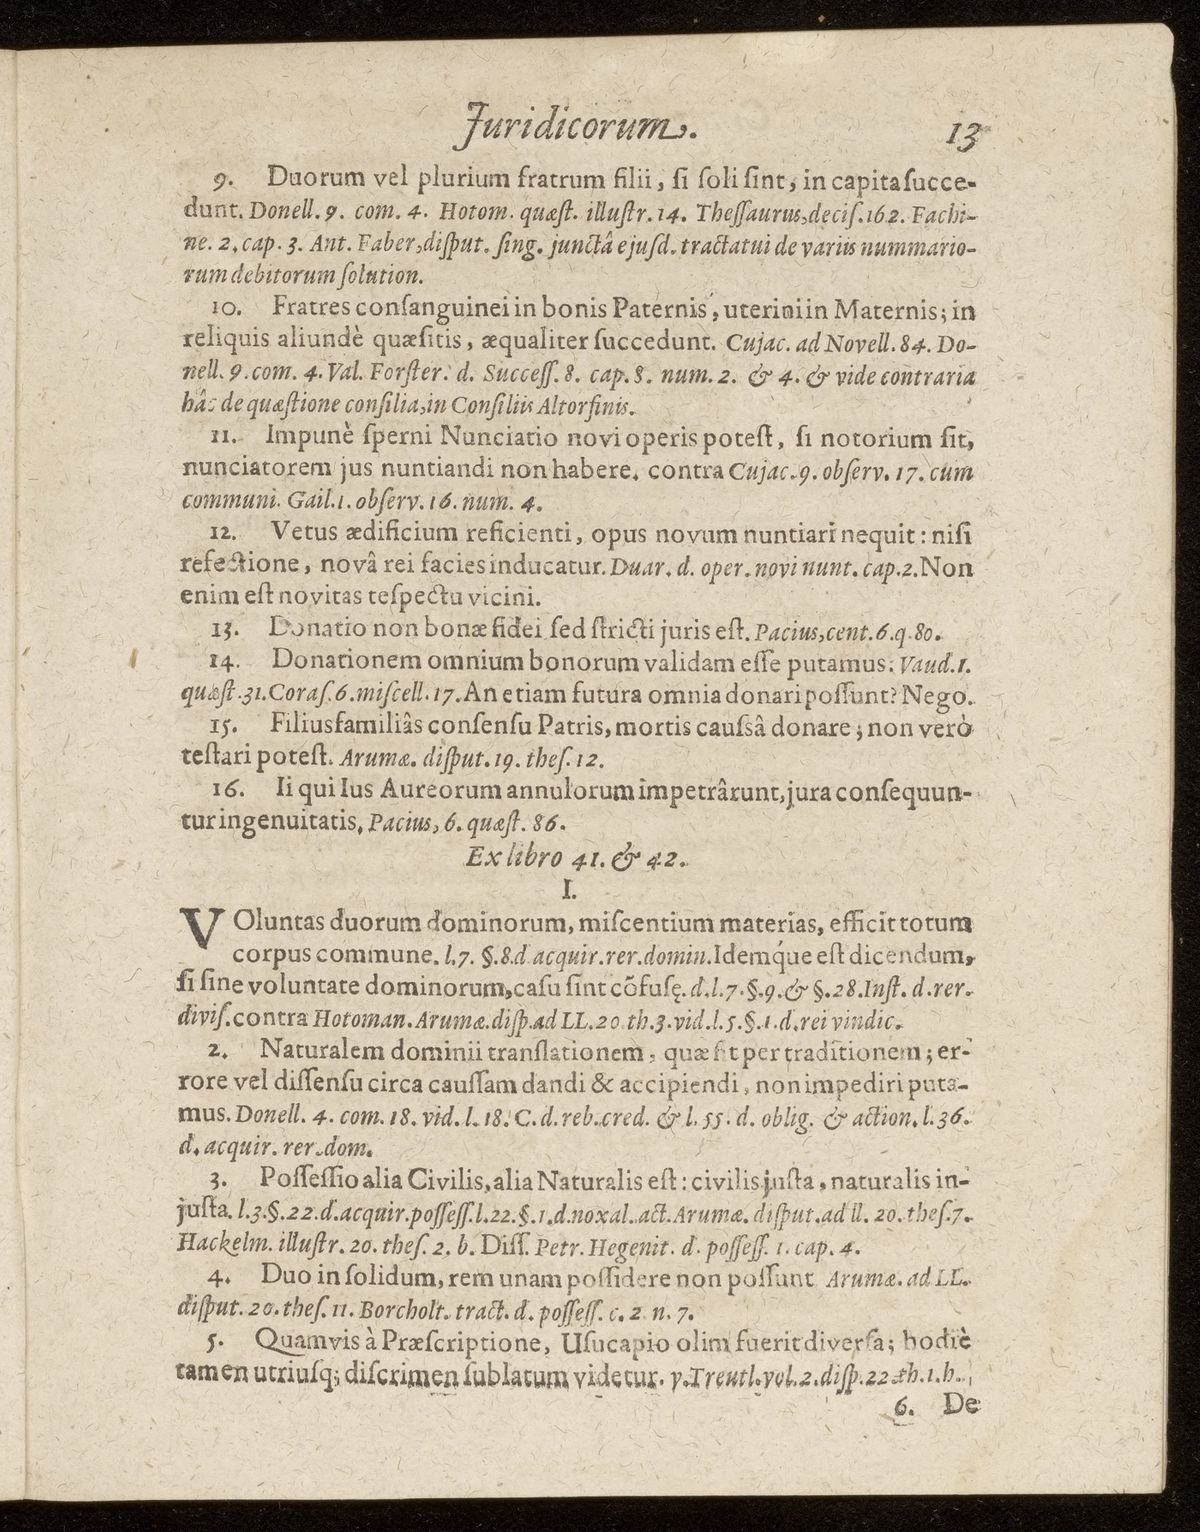 Juridicorum. 13
9. Duorum vel plurium fratrum filii, ſi ſoli ſint, in capita ſucce-
dunt. Donell. 9. com. 4. Hotom. quæſt. illuſtr. 14. Theſſaurus, deciſ. 162. Fachi-
ne. 2. cap. 3. Ant. Faber, diſput. ſing. junctâ ejuſd. tractatui de variis nummario-
rum debitorum ſolution.
10. Fratres conſanguinei in bonis Paternis, uterini in Maternis; in
reliquis aliundè quæſitis, æqualiter ſuccedunt. Cujac. ad Novell. 84. Do-
nell. 9. com. 4. Val. Forſter. d. Succeſſ. 8. cap. 8. num. 2. & 4. & vide contraria
hâc de quæſtione conſilia, in Conſiliis Altorfinis.
11. Impunè ſperni Nunciatio novi operis poteſt, ſi notorium ſit,
nunciatorem jus nuntiandi non habere. contra Cujac. 9. obſerv. 17. cum
communi. Gail. 1. obſerv. 16. num. 4.
12. Vetus ædificium reficienti, opus novum nuntiari nequit: niſi
refectione, novâ rei facies inducatur. Duar. d. oper. novi nunt. cap. 2. Non
enim eſt novitas teſpectu vicini.
13. Donatio non bonæ fidei ſed ſtricti juris eſt. Pacius, cent. 6. q. 80.
14. Donationem omnium bonorum validam eſſe putamus. Vaud. 1.
quæſt. 31. Coraſ. 6. miſcell. 17. An etiam futura omnia donari poſſunt? Nego.
15. Filiusfamiliâs conſenſu Patris, mortis cauſsâ donare; non verò
teſtari poteſt. Arumæ. diſput. 19. theſ. 12.
16. Ii qui Ius Aureorum annulorum impetrârunt, jura conſequun-
tur ingenuitatis. Pacius, 6. quæſt. 86.
Ex libro 41. & 42.
I.
VOluntas duorum dominorum, miſcentium materias, efficit totum
corpus commune. l. 7. §. 8. d acquir. rer. domin. Idemq́ue eſt dicendum,
ſi ſine voluntate dominorum, caſu ſint cõfuſę. d. l. 7. §. 9. & §. 28. Inſt. d. rer.
diviſ. contra Hotoman. Arumæ. diſp. ad LL. 20. th. 3. vid. l. 5. §. 1. d. rei vindic.
2. Naturalem dominii translationem, quæ fit per traditionem; er-
rore vel diſſenſu circa cauſſam dandi & accipiendi, non impediri puta-
mus. Donell. 4. com. 18. vid. l. 18. C. d. reb. cred. & l. 55. d. oblig. & action. l. 36.
d. acquir. rer. dom.
3. Poſſeſſio alia Civilis, alia Naturalis eſt: civilis juſta, naturalis in-
juſta. l. 3. §. 22. d. acquir. poſſeſſ. l. 22. §. 1. d. noxal. act. Arumæ. diſput. ad ll. 20. theſ. 7.
Hackelm. illuſtr. 20. theſ. 2. b. Diſſ. Petr. Hegenit. d. poſſeſſ. 1. cap. 4.
4. Duo in ſolidum, rem unam poſſidere non poſſunt Arumæ. ad LL.
diſput. 20. theſ. 11. Borcholt. tract. d. poſſeſſ. c. 2. n. 7.
5. Quamvis à Præſcriptione, Uſucapio olim fuerit diverſa; hodiè
tamen utriuſq; diſcrimen ſublatum videtur. v. Treutl. vol. 2. diſp. 22 th. 1. b.
6. De